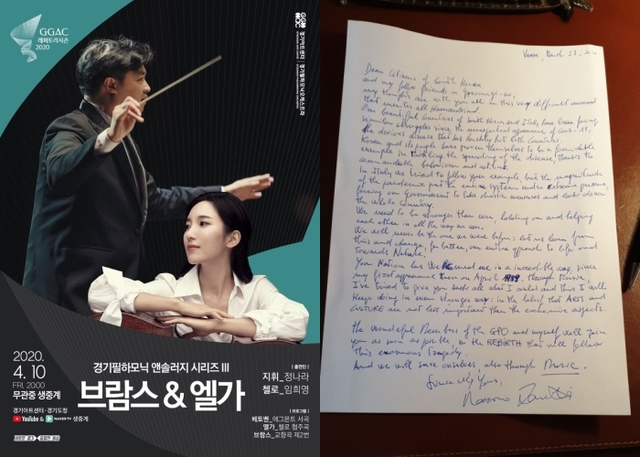 GGAC
레퍼토리시즌
2020
경기아트센터
경기필하모닉오케스트라
2020.
4. 10
FRI. 20:00
무관중 생중계
경기아트센터·경기도청
YouTube & NAVER TV 생중계
경기필하모닉 앤솔러지 시리즈 III
브람스 & 엘가
| 출연진 |
지휘_정나라
첼로_임희영
| 프로그램 |
베토벤_에그몬트 서곡
엘가_첼로 협주곡
브람스_교향곡 제2번
March 23,
Dear Citizens of South Korea
and my fellow friends in Gyeonggi-do,
my thoughts are with you all in this very difficult moment
that unites all Humankind.
Our beautiful Countries of South Korea and Italy have been facing
similar struggles since the unexpected appearance of COVID-19,
the devious disease that has harshly hit both Countries.
Korea and its people have proven themselves to be a formidable
example in tackling the spreading of the disease, thanks to
commendable behaviour and actions.
In Italy we tried to follow your example, but the magnitude
of the pandemic put the entire system under extreme pressure,
forcing our Government to take drastic measures and lock down
the whole Country.
We need to be stronger than ever, holding on and helping
each other in all the way we can.
We will never be the one we were before: let us learn from
this and change, for better, our entire approach to life and
towards Nature.
Your Nation has welcomed me in a incredible way, since
my first appearance there on April through Music.
I've tried to give you back all what I could and this I will
keep doing in even stronger way: in the belief that ARTS and
CULTURE are not less important than the economic aspects.
the wonderful Members of the GPO and myself will join
you as soon as possible in the REBIRTH that will follow
this enormous tragedy.
And we will save ourselves also through Music.
Sincerely Yours,
Massimo Zanetti